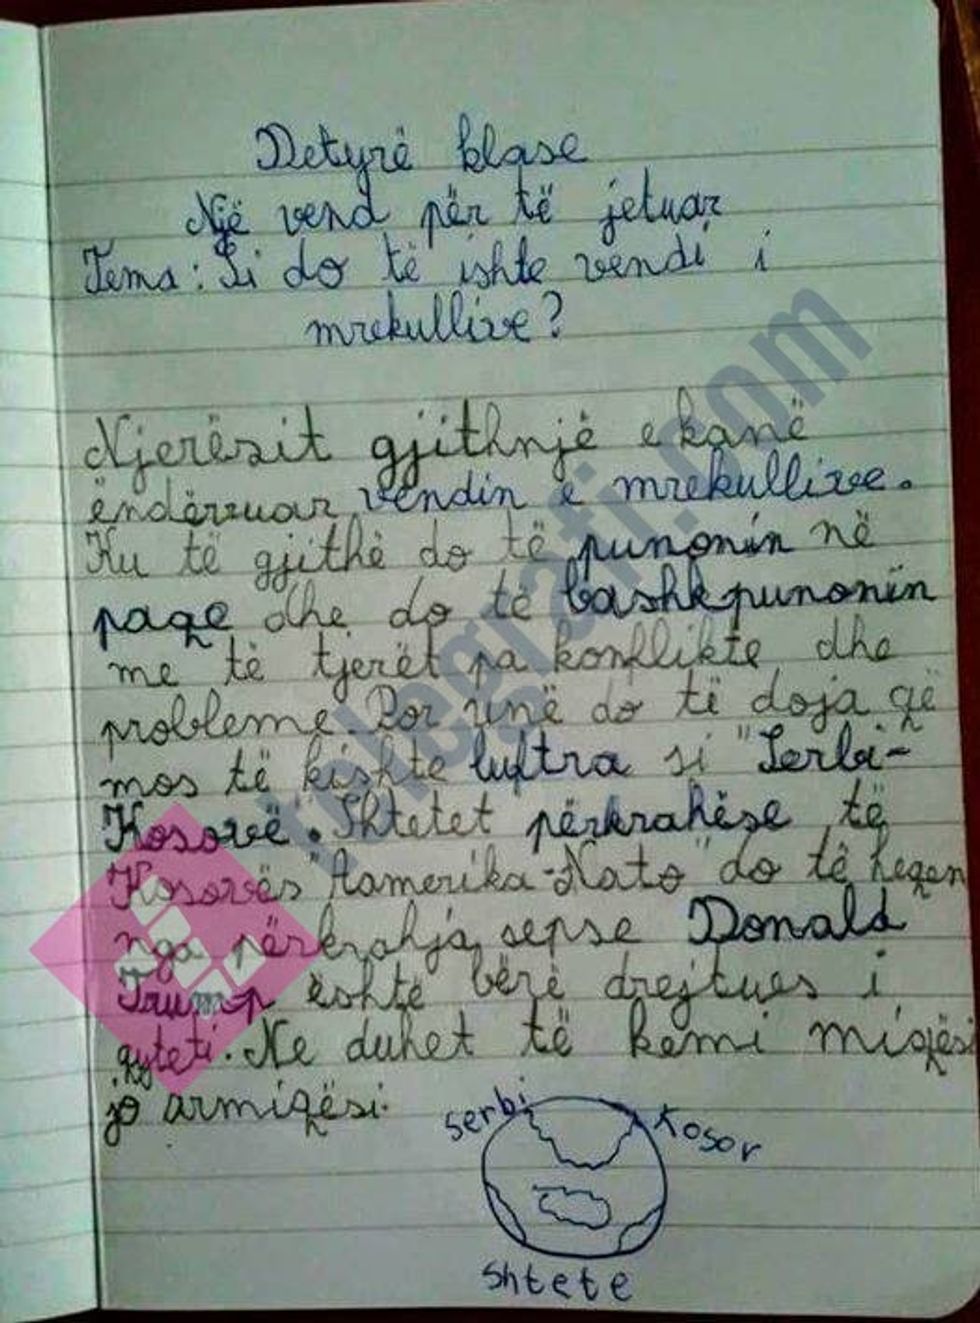 Detyrë klase
Një vend për të jetuar
Tema: Si do të ishte vendi i
mrekullive?
Njerëzit gjithnjë e kanë
ëndërruar vendin e mrekullive.
Ku të gjithë do të punonin në
paqe dhe do të bashkpunonin
me të tjerët pa konflikte dhe
probleme. Por unë do të doja që
mos të kishte luftra si "Serbi-
Kosovë". Shtetet përkrahëse të
Kosovës "Aamerika-Nato" do të heqen
nga përkrahja, sepse Donald
Trump është bërë drejtues i
qyteti. Ne duhet të kemi miqësi
jo armiqësi.
serbi
Kosov
shtete
telegrafi.com